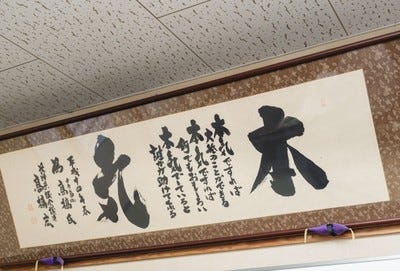 本
本気ですれば
大抵のことができる
本気ですれば
何でもおもしろい
本気でしていると
誰かが助けてくれる
気
平成十四年
為